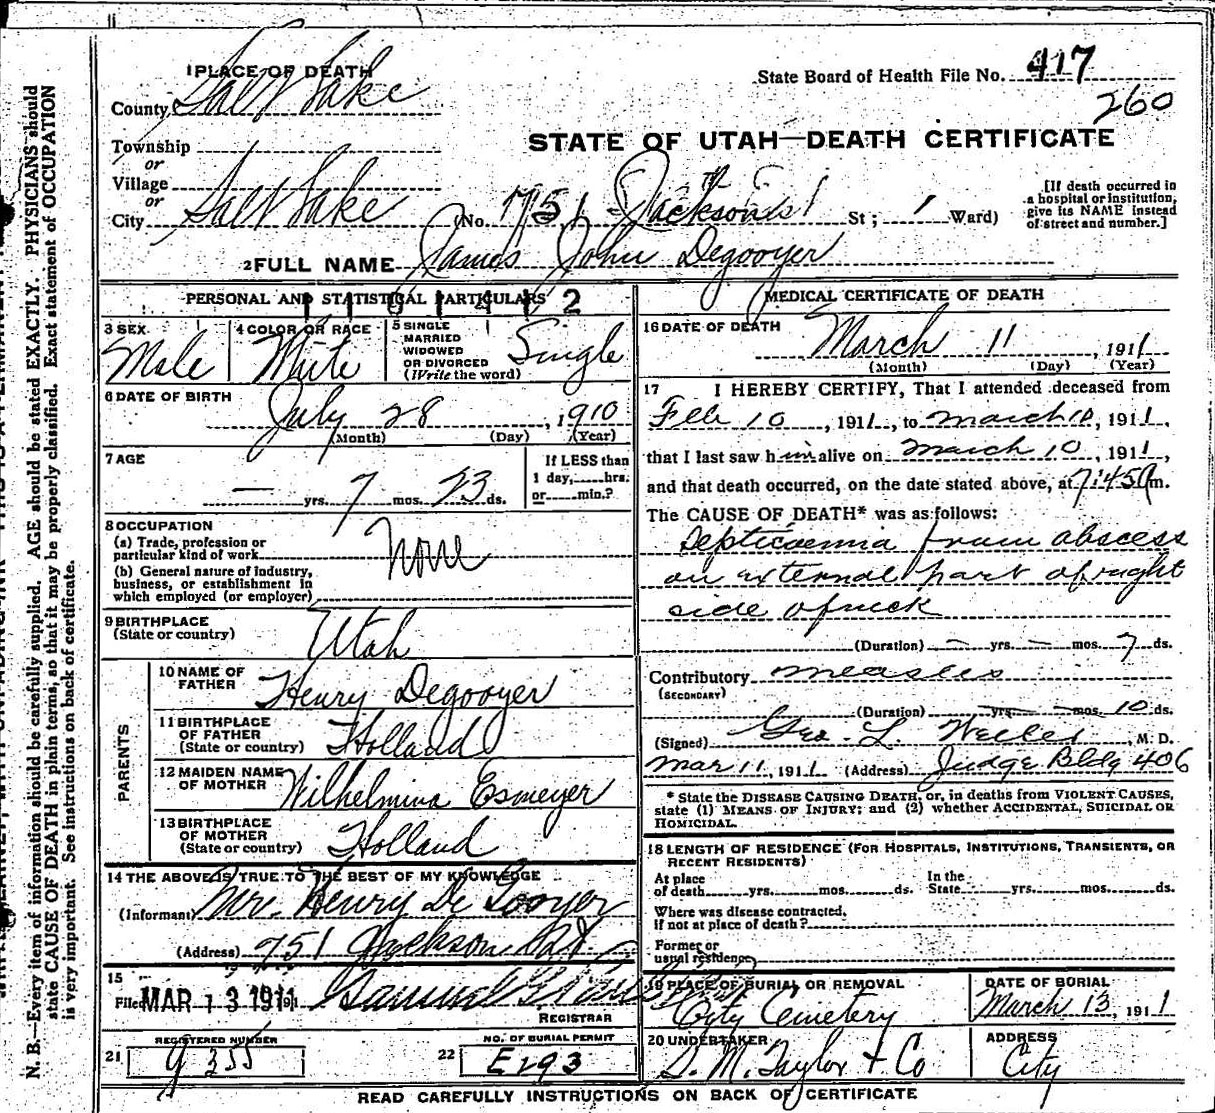 1 PLACE OF DEATH
State Board of Health File No. 417
260
County Salt Lake
STATE OF UTAH—DEATH CERTIFICATE
Township
or
Village
or
City Salt Lake (No. 751 Jackson St ; 1 Ward)
[If death occurred in a hospital or institution, give its NAME instead of street and number.]
2 FULL NAME James John Degooyer
PERSONAL AND STATISTICAL PARTICULARS
3 SEX Male
4 COLOR OR RACE White
5 SINGLE MARRIED WIDOWED OR DIVORCED (Write the word) Single
6 DATE OF BIRTH July 28, 1910
(Month) (Day) (Year)
7 AGE — yrs. 7 mos. 23 ds.
If LESS than 1 day,......hrs. or......min.?
8 OCCUPATION
(a) Trade, profession or particular kind of work None
(b) General nature of industry, business, or establishment in which employed (or employer)
9 BIRTHPLACE (State or country) Utah
PARENTS
10 NAME OF FATHER Henry Degooyer
11 BIRTHPLACE OF FATHER (State or country) Holland
12 MAIDEN NAME OF MOTHER Wilhelmina Esmeyer
13 BIRTHPLACE OF MOTHER (State or country) Holland
14 THE ABOVE IS TRUE TO THE BEST OF MY KNOWLEDGE
(Informant) Mrs. Henry De Gooyer
(Address) 751 Jackson St.
15
Filed MAR 13 1911
REGISTRAR
REGISTERED NUMBER
21 9355
NO. OF BURIAL PERMIT
22 E293
MEDICAL CERTIFICATE OF DEATH
16 DATE OF DEATH
March 11, 1911
(Month) (Day) (Year)
17 I HEREBY CERTIFY, That I attended deceased from
Feb 10, 1911, to March 10, 1911,
that I last saw him alive on March 10, 1911,
and that death occurred, on the date stated above, at 7:45 A m.
The CAUSE OF DEATH* was as follows:
Septicaemia from abscess
on external part of right
side of neck
(Duration) — yrs. — mos. 7 ds.
Contributory measles
(SECONDARY)
(Duration) yrs. mos. 10 ds.
(Signed) Geo. L. , M. D.
Mar 11, 1911 (Address) Judge Bldg 406
* State the DISEASE CAUSING DEATH, or, in deaths from VIOLENT CAUSES, state (1) MEANS OF INJURY; and (2) whether ACCIDENTAL, SUICIDAL OR HOMICIDAL.
18 LENGTH OF RESIDENCE (FOR HOSPITALS, INSTITUTIONS, TRANSIENTS, OR RECENT RESIDENTS)
At place of death......yrs......mos......ds. In the State......yrs......mos......ds.
Where was disease contracted, if not at place of death?
Former or usual residence
19 PLACE OF BURIAL OR REMOVAL City Cemetery
DATE OF BURIAL March 13, 1911
20 UNDERTAKER S. M. Taylor + Co
ADDRESS City
READ CAREFULLY INSTRUCTIONS ON BACK OF CERTIFICATE
N. B.—Every item of information should be carefully supplied. AGE should be stated EXACTLY. PHYSICIANS should
state CAUSE OF DEATH in plain terms, so that it may be properly classified. Exact statement of OCCUPATION
is very important. See instructions on back of certificate.